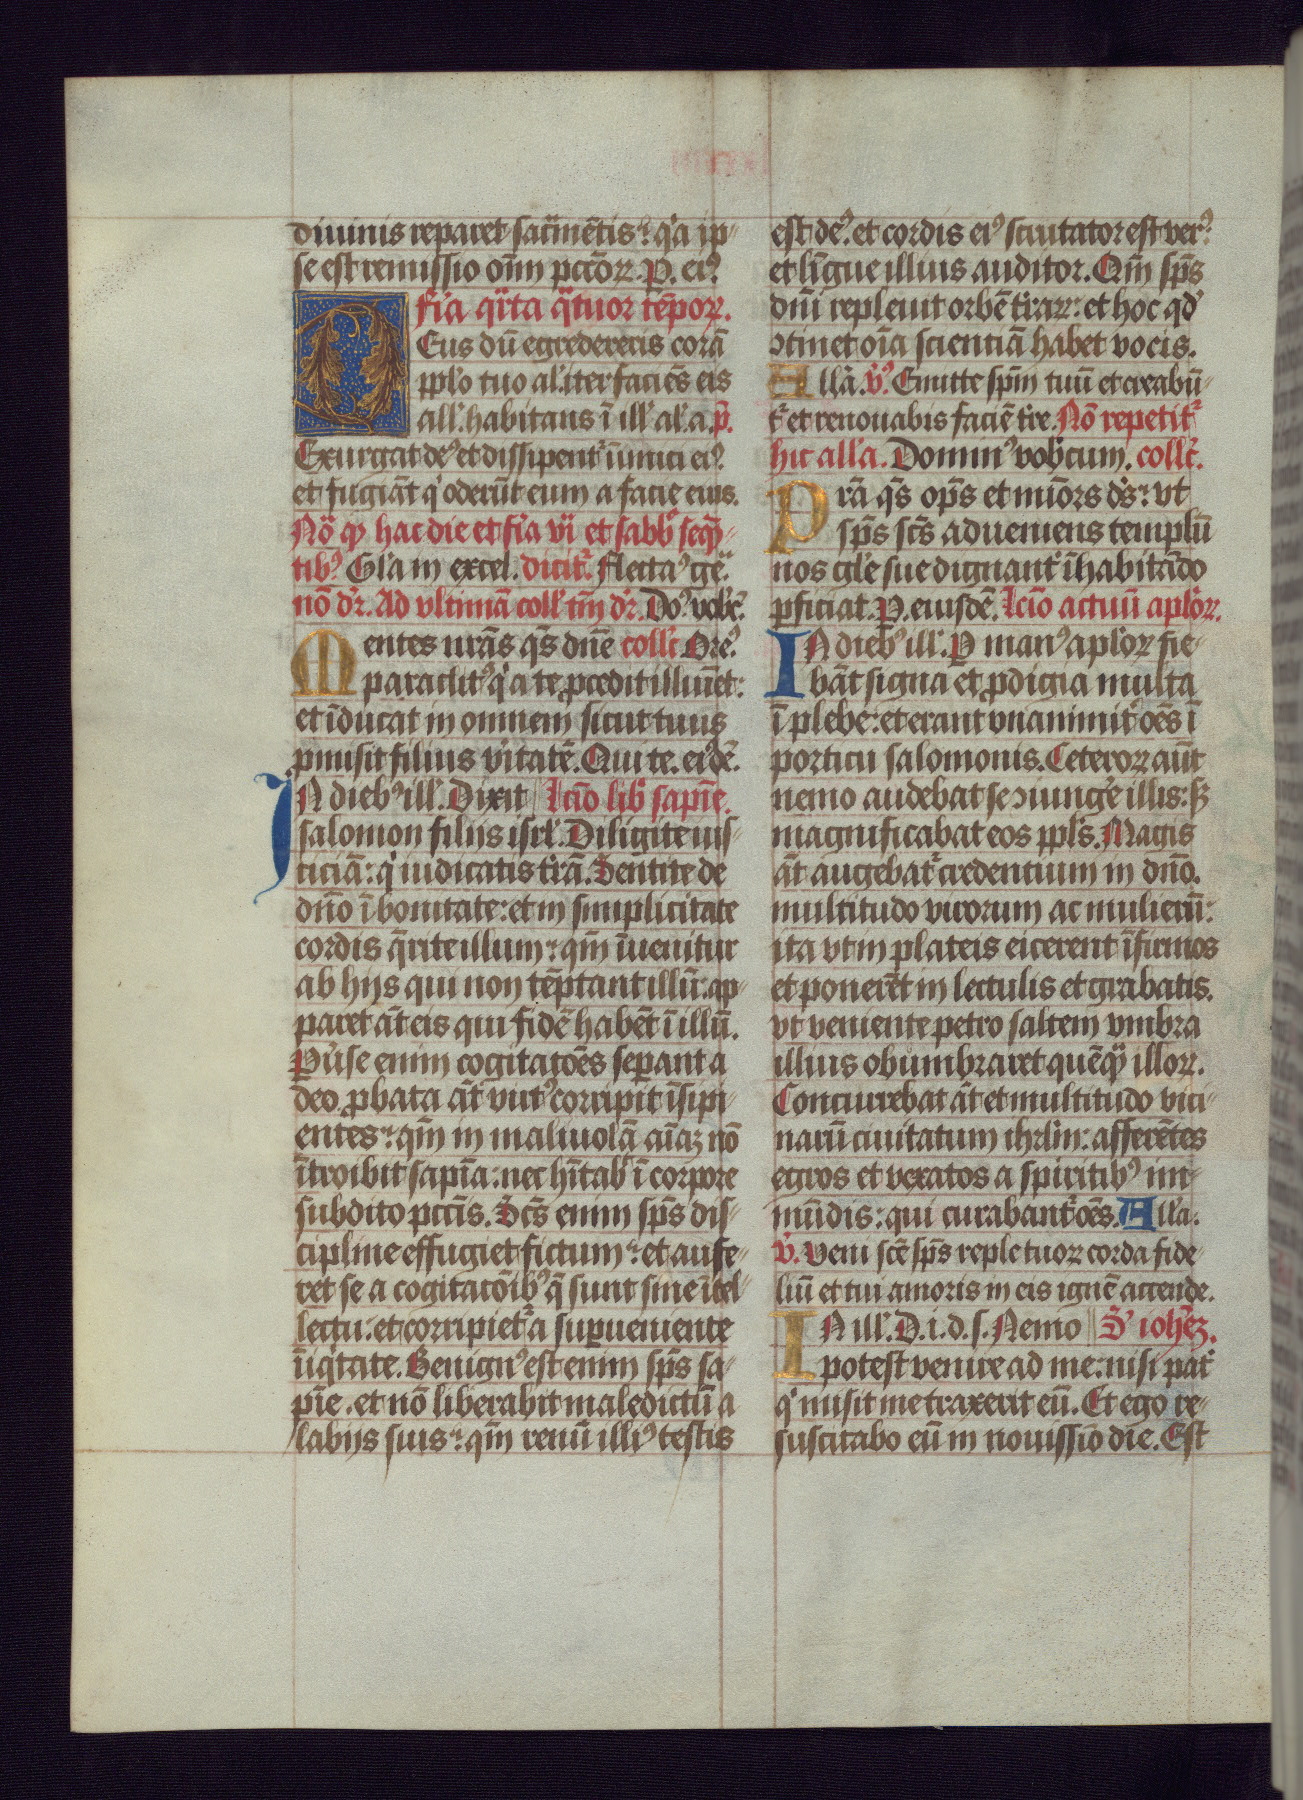 diuinis reparet sacͬmētis: qͥa ip-
se est remissio oīm pctōꝝ. P. eiꝰ
fͥia qͬrta qͣtuor tēpoꝝ.
Deus dū egredereris corā
pplo tuo al'. iter faciēs eis
all'. habitans ī ill' al'. a. pͫ.
Exurgat deꝰ et dissipentͬ inimici eiꝰ
et fugiāt qͥ oderūt eum a facie eius.
Nōͣ ꝙ hac die et fͥia vi et sabbͦ seqͣ̄-
tibꝰ Gl'a in excel. dicitͬ. flectaꝰ ge.
nō dr̄. Ad vltimā coll' tm̄ dr̄. Doꝰ vobc.
Mentes nr̄as qs̄ dn̄e coll'c Oreꝰ
paraclitꝰ qͥ a te ꝓcedit illuīet:
et īducat in omnem sicut tuus
ꝓmisit filius vͥitatē. Qui te. eiꝰdē.
IN diebꝰ ill'. Dixit lcīo libͥ sapīe.
salomon filijs isrl'. Diligite ius-
ticiā: qͥ iudicatis tͬrā. Sentite de
dn̄o ī bonitate: et in simplicitate
cordis qͣ̄rite illum: qm̄ īuenitur
ab hijs qui non tēptant illū: ap-
paret āt eis qui fidē habēt ī illū.
Pͥuͥse enim cogitatōes sepant a
deo. ꝓbata āt virtꝰ corripit īsipi-
entes: qm̄ in maliuolā aīaꝫ nō
ītroibit sapīa: nec hītabͥ ī corpore
subdito pctīs. Scs̄ enim sps̄ dis-
cipline effugiet fictum: et aufe-
ret se a cogitatōibꝰ qͣ̄ sunt sine ītel-
lectu: et corripietͬ a supueniente
īiqͥtate. Benignꝰ est enim sps̄ sa-
pīe. et nō liberabit maledictū a
labijs suis: qm̄ renū illiꝰ testis
est deꝰ. et cordis eiꝰ scrutator est verꝰ:
et līgue illius auditor. Qm̄ sps̄
dn̄i repleuit orbē tͬraꝝ: et hoc qd'
ↄtinet oīa scientiā habet vocis.
All'a. v̄. Emitte spm̄ tuū et creabū-
tͬ et renouabis faciē tͬre. Nō repetitͬ
hic all'a. Dominꝰ vobͥcum. coll'c.
Prā qs̄ op̄s et miōrs ds̄: vt
sps̄ scs̄ adueniens templū
nos gl'e sue dignantͬ īhabitādo
pficiat. P. eiusdē. lcīo actuū apl'oꝝ.
IN diebꝰ ill'. P manꝰ apl'oꝝ fie-
bāt signa et ꝓdigia multa
ī plebe: et erant vnanimitͬ oēs ī
porticu salomonis. Ceteroꝝ aūt
nemo audebat se ↄiungͤe illis: sꝫ
magnificabat eos ppl's. Magis
āt augebatͬ credentium in dn̄o.
multitudo virorum ac mulierū:
ita vt in plateis eicerent īfirmos
et ponerēt in lectulis et grabatis.
vt veniente petro saltem vmbra
illius obumbraret quēqͣ̄ illoꝝ.
Concurrebat āt et multitudo vici-
narū ciuitatum ihrl'm: afferētes
egros et vexatos a spiritibꝰ im-
mūdis: qui curabantͬ oēs. All'a.
v̄. Veni scē sps̄ reple tuoꝝ corda fide-
liū et tui amoris in eis ignē accende.
IN ill'. D. i. d. s. Nemo Sͫ iohēꝫ.
potest venire ad me: nisi patͬ
qͥ misit me traxerit eū. Et ego re-
suscitabo eū in nouissīo die. Est